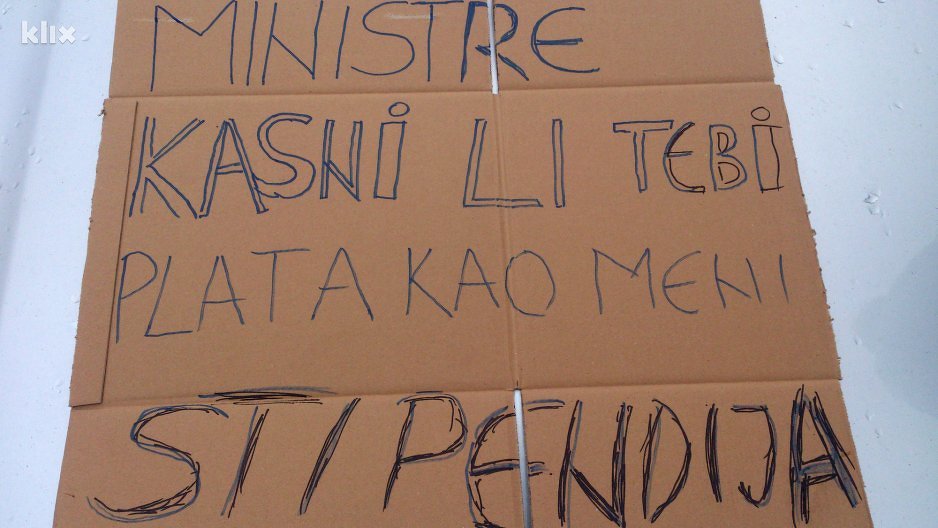 klix
MINISTRE
KASNI LI TEBI
PLATA KAO MENI
STIPENDIJA